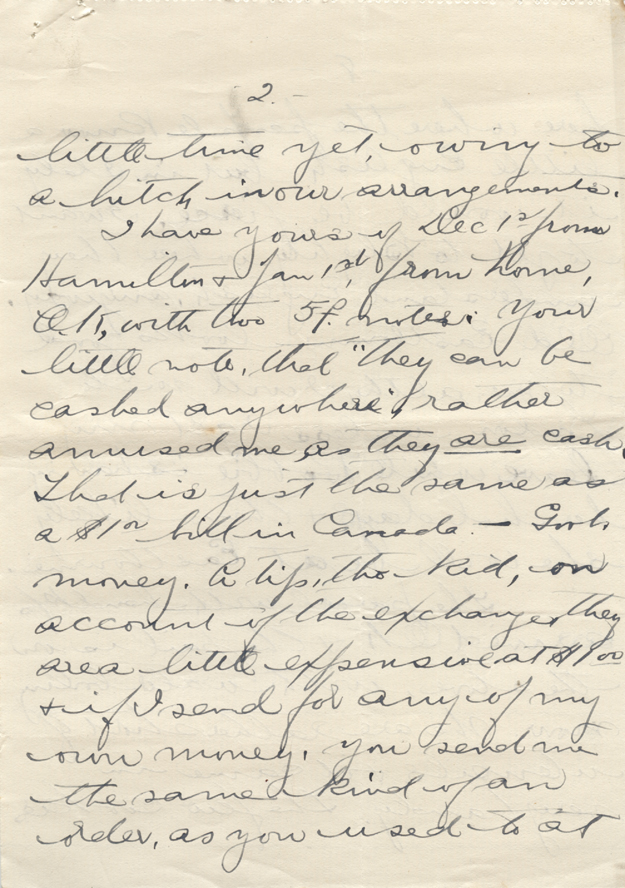 2.
little time yet, owing to
a hitch in our arrangements.
I have yours of Dec 1st from
Hamilton & Jan 1st, from home,
O.K, with two 5f. notes. Your
little note, that "they can be
cashed anywhere", rather
amused me, as they are cash.
That is just the same as
a $1.00 bill in Canada. - Govt.
money. A tip, tho kid, on
account of the exchange, they
are a little expensive at $1.00
& if I send for any of my
own money, you send me
the same kind of an
order, as you used to at